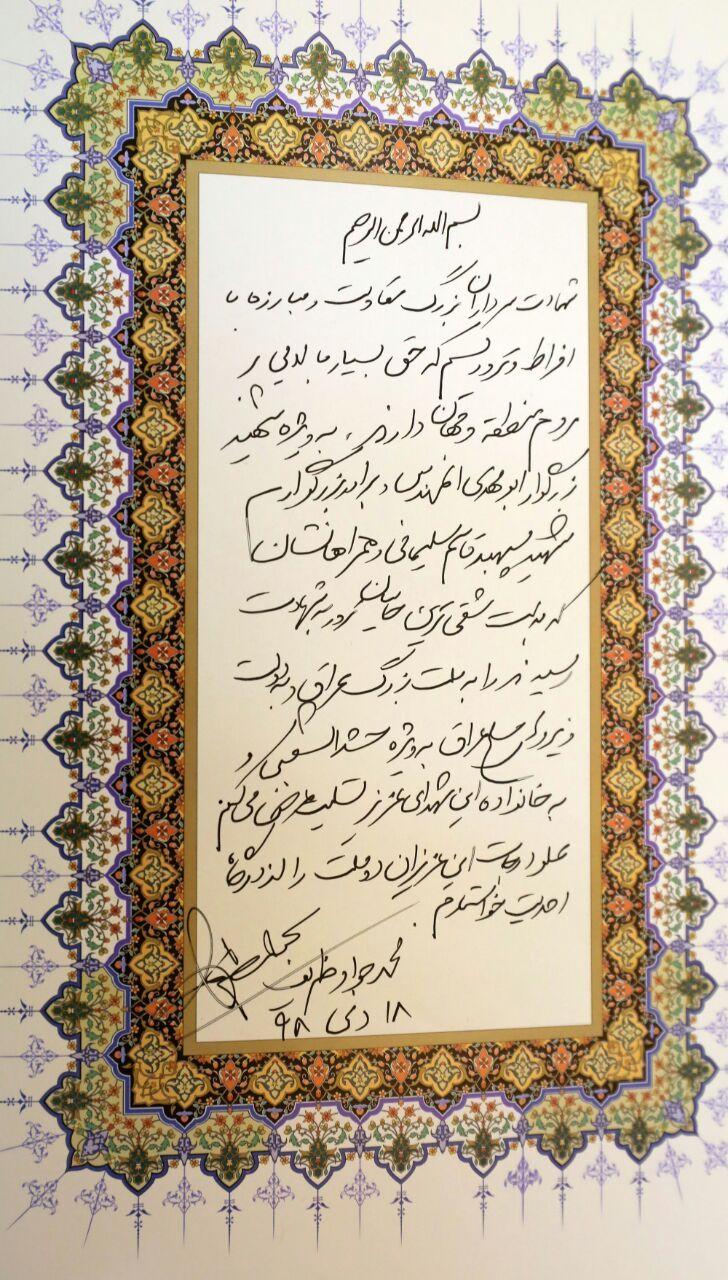 بسم الله الرحمن الرحیم
شهادت سرداران بزرگ مقاومت و مبارزه با
افراط و تروریسم که حقی بسیار ما بر
مردم منطقه و جهان دارند، به ویژه شهید
بزرگوار ابو مهدی المهندس و برادر بزرگوارم
شهید سپهبد قاسم سلیمانی و همراهانشان
که بدست شقی ترین جانیان به شهادت
رسیدند را به ملت بزرگ عراق و به دولت
و نیروهای مسلح عراق به ویژه حشد الشعبی و
به خانواده این شهدای عزیز تسلیت عرض می کنم
علو درجات این عزیزان دو ملت را از درگاه
احدیت خواستارم.
محمد جواد ظریف
۱۸ دی ۹۸